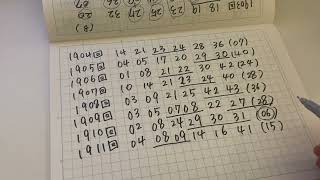 1903回 18
20 27 32 (8)
1904回 14 21 23 24 28 36 (07)
1905回 04 05 17 20 29 30 (40)
1906回 01 08 21 22 30 42 (24)
1907回 10 14 21 23 24 40 (28)
1908回 03 09 21 25 42 43 (36)
1909回 03 05 07 08 22 27 (28)
1910回 02 08 24 29 30 31 (06)
1911回 04 08 09 14 16 41 (15)